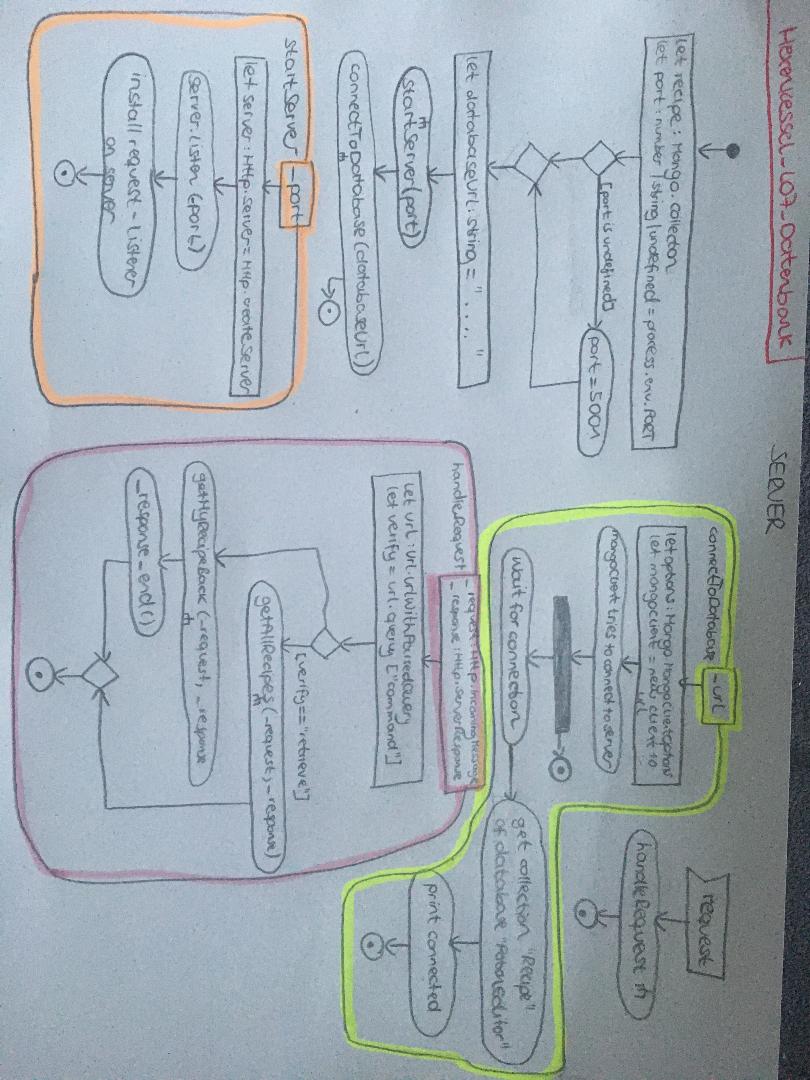 Hexenkessel_L07_Datenbank
SERVER
let recipe: Mongo.collection
let port: number | string | undefined = process.env.PORT
[port is undefined]
port = 5001
let databaseUrl: string = " .... "
startServer(port)
connectToDatabase (databaseUrl)
startServer
_port
let server: Http.server = Http.createServer
server.listen (_port)
install request-Listener
on server
connectToDatabase
_url
let options: Mongo.MongoClientOptions
let mongoclient = new client to
url
mongoClient tries to connect to server
wait for connection
get collection "Recipe"
of database "PotionEditor"
print connected
request
handleRequest
handleRequest
_request: Http.IncomingMessage
_response: Http.ServerResponse
let url: Url.UrlWithParsedQuery
let verify = url.query ["command"]
[verify=="retrieve"]
getAllRecipes (_request, _response)
getMyRecipeBack (_request, _response
_response_end()